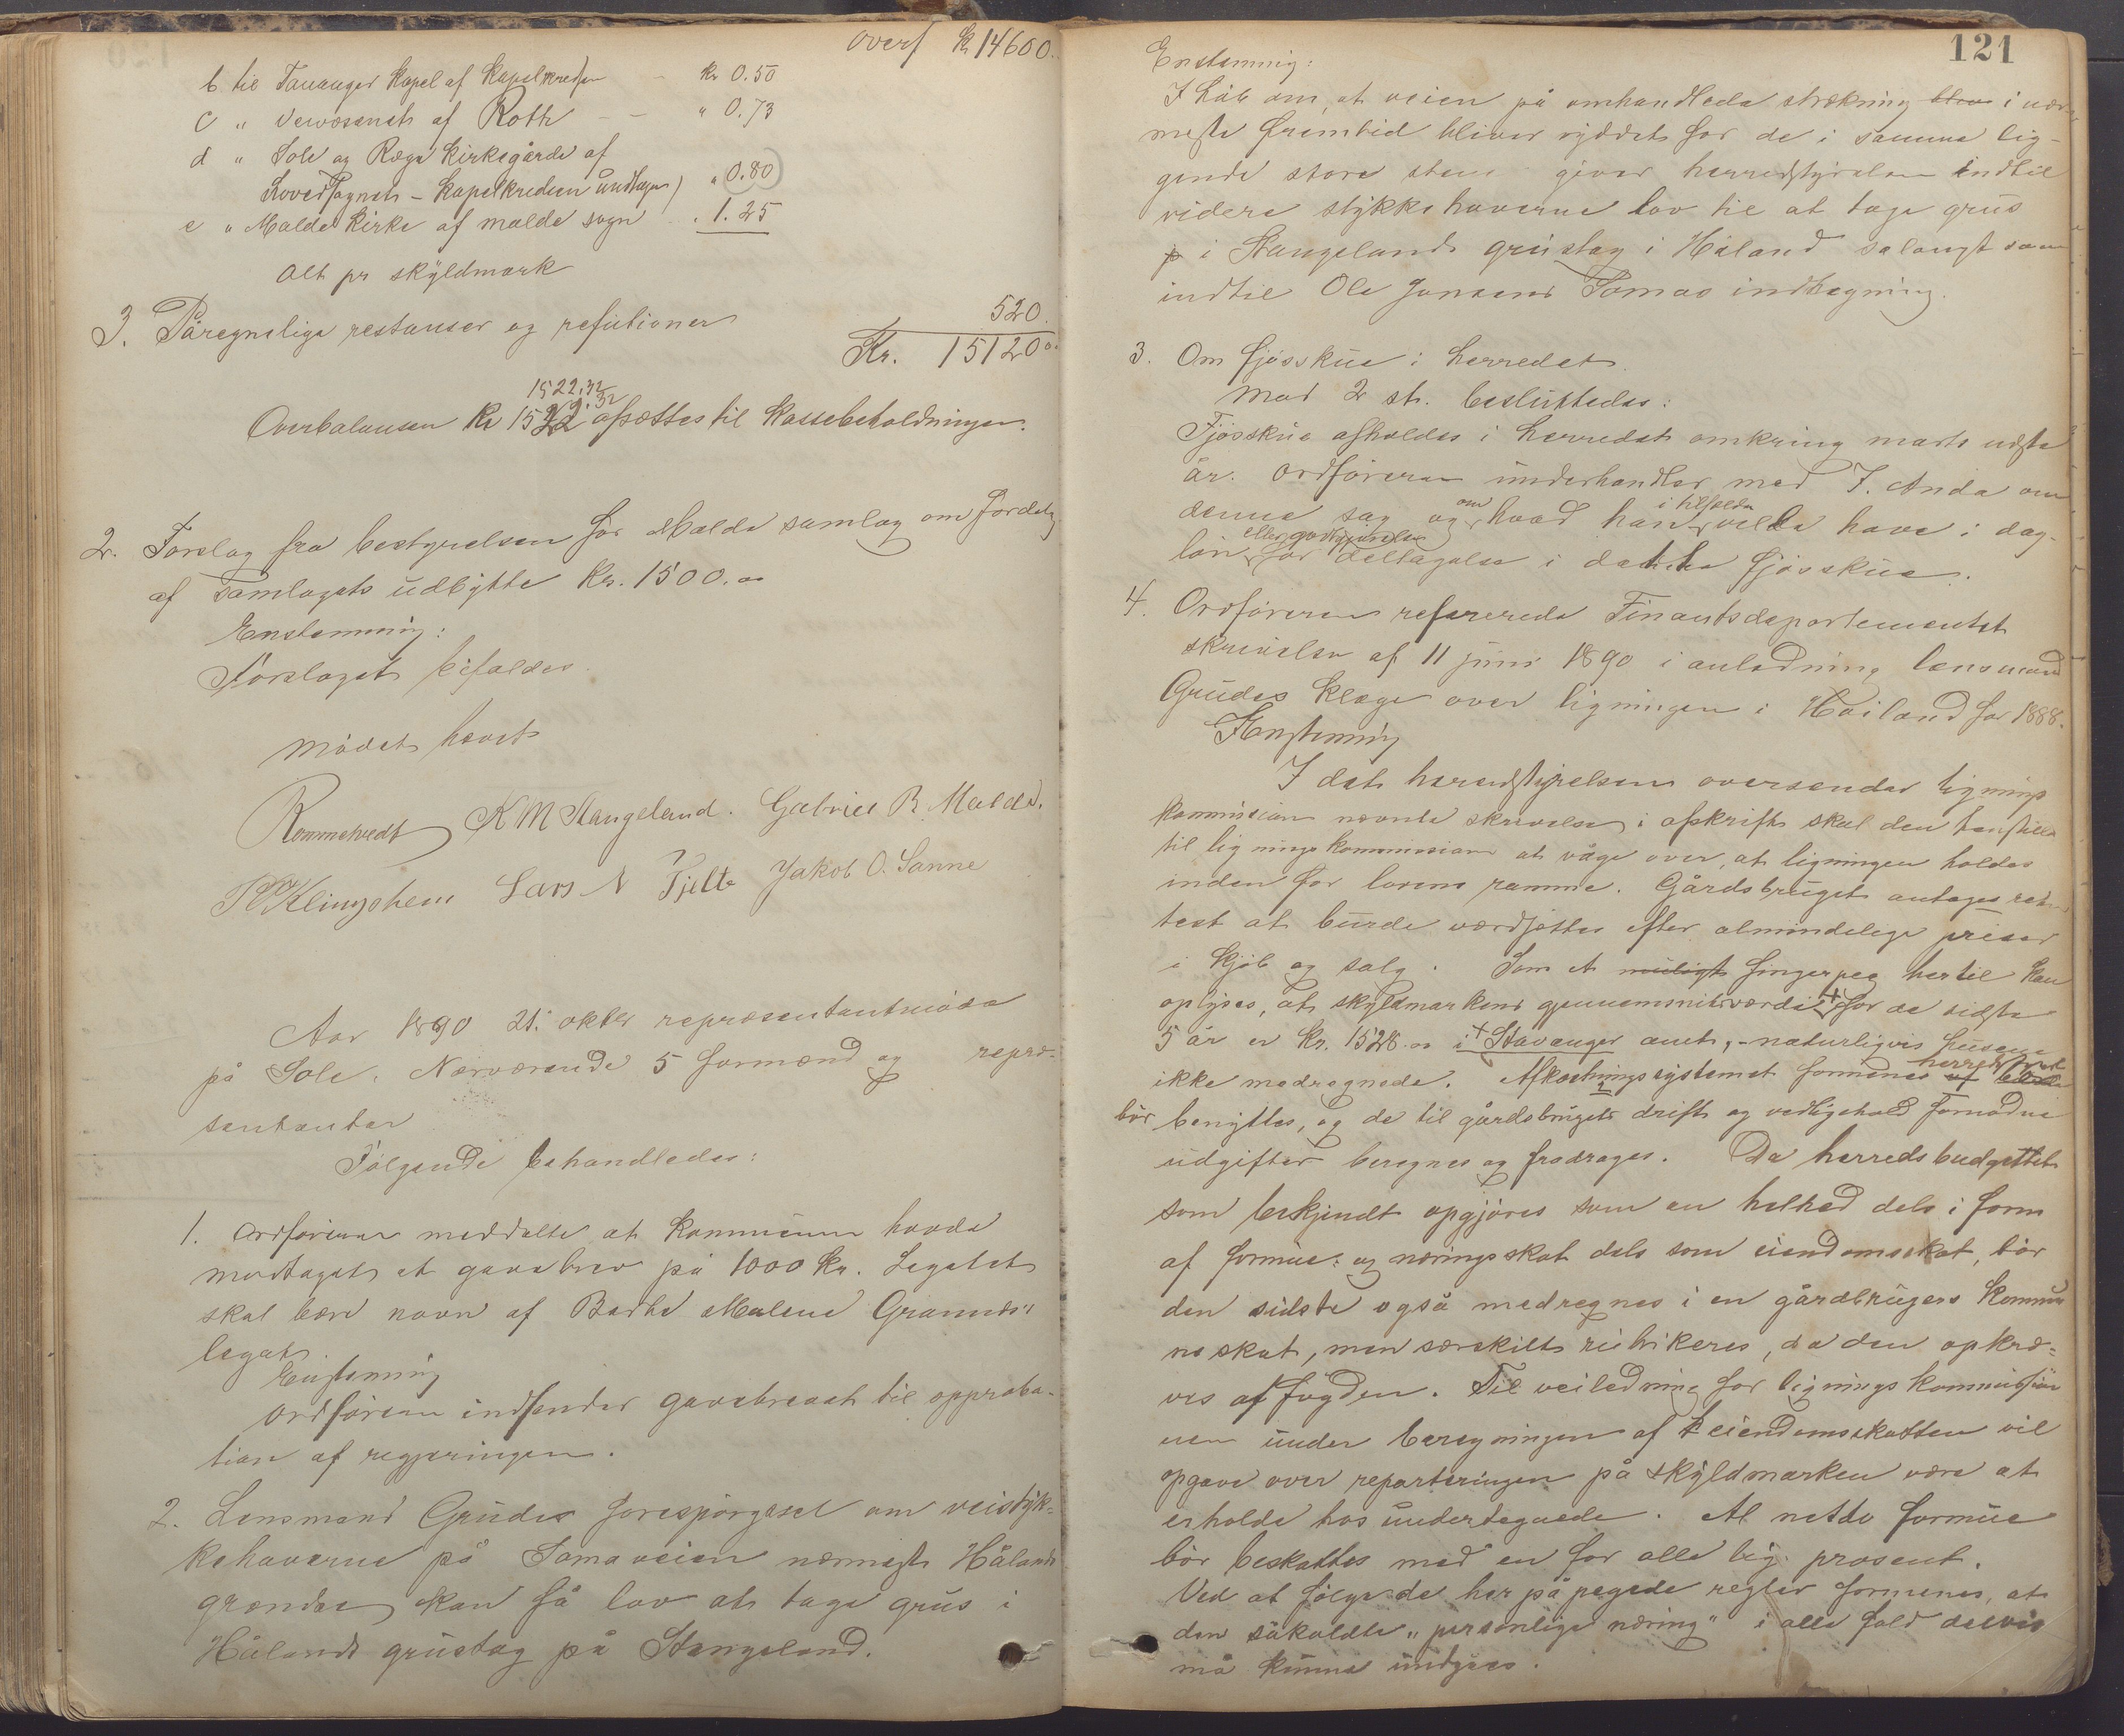 overf kr 14600.
b til Tananger kapel af kapelkredsen – kr 0.50
c " veivæsenet af Roth – – " 0.73
d " Sole og Ræge kirkegårde af
hovedsognet – kapelkredsen undtagen) " 0.80
e " Malde kirke af malde sogn . 1.25
Alt pr skyldmark
3. Påregnelige restanser og refutioner 520.
Kr. 15120.00
1522.32
Overbalansen kr 1522.32 afsættes til kassebeholdningen.
2. Forslag fra bestyrelsen for Malde samlag om fordelg
af samlagets udbytte kr. 1500.00
Enstemmig:
Forslaget bifaldes.
Mødet hævet
Rommetvedt KM Stangeland. Gabriel R. Malde.
Klingsheim Lars N Tjelte Jakob O. Sanne
Aar 1890 21. oktbr repræsentantmøde
på Sole. Nærværende 5 formænd og repræ-
sentanter
Følgende behandledes:
1. Ordføreren meddelte at kommunen havde
modtaget et gavebrev på 1000 kr. Legatet
skal bære navn af Barthe Malene Grannes's
legat.
Enstemmig
Ordføreren indsender gavebrevet til approba-
tion af regjeringen.
2. Lensmand Grudes forespørgsel om veistyk-
kehaverne på Somaveien nærmest Hålands
grændse kan få lov at tage grus i
Hålands grustag på Stangeland.
121
Enstemmig:
I håb om, at veien på omhandlede strækning blev i nær
meste fremtid bliver ryddet for de i samme lig-
gende store stene giver herredstyrelsen indtil
videre stykkehaverne lov til at tage grus
p i Stangelands grustag i Håland salangt som
indtil Ole Jonsens Somas indhegning.
3. Om fjøsskue i herredet.
Mod 2 st. besluttedes:
Fjøsskue afholdes i herredet omkring marts næste
år. Ordføreren underhandler med J. Anda om
denne sag og om hvad han i tilfælde ville have i dag-
løn eller godtgjørelse for deltagelse i dette fjøsskue.
4. Ordføreren refererede Finantsdepartementet
skrivelse af 11 juni 1890 i anledning lensmand
Grudes klage over ligningen i Håiland for 1888.
Enstemmig
I det herredstyrelsen oversender lignings
kommision nævnte skrivelse i afskrift skal den henstille
til ligningskommissionen at våge over, at ligningen holdes
inden for lovens ramme. Gårdsbruget antages ret
test at burde værdsættes efter almindelige priser
i kjøb og salg. Som et muligt fingerpeg hertil kan
oplyses, at skyldmarkens gjennemsnitsværdi + for de sidste
5 år er kr. 1528.00 i + Stavanger amt, – naturligvis husene
ikke medregnede. Afkastningssystemet formenes af herredstyret
bør benyttes, og de til gårdsbrugets drift og vedligehold fornødne
udgifter beregnes og fradrages. Da herredsbudgettet
som bekjendt opgjøres som en helhed dels i form
af formue- og næringsskat dels som eiendomsskat, bør
den sidste også medregnes i en gårdbrugers kommu
neskat, men særskilt rubrikeres, da den opkræ-
ves af fogden. Til veiledning for ligningskommissio
nen under beregningen af eiendomsskatten vil
opgave over reparteringen på skyldmarken være at
erholde hos undertegnede. Al netto formue
bør beskattes med en for alle lig prosent.
Ved at følge de her påpegede regler formenes, at
den såkaldte "personlige næring" i alle fald delvis
må kunne undgåes.